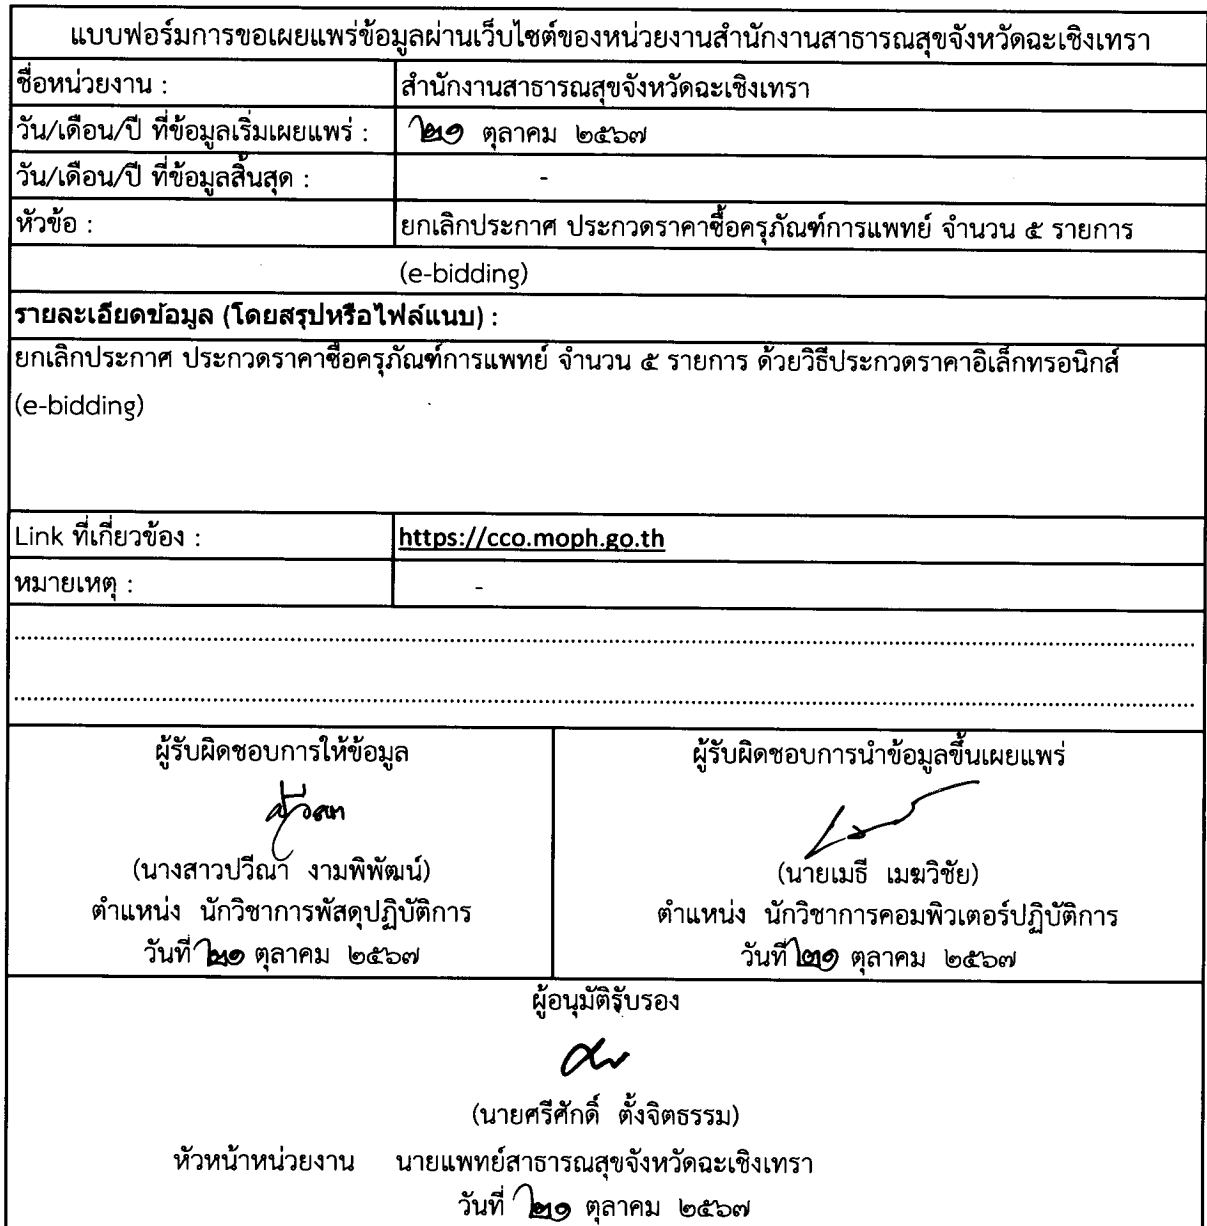 แบบฟอร์มการขอเผยแพร่ข้อมูลผ่านเว็บไซต์ของหน่วยงานสำนักงานสาธารณสุขจังหวัดฉะเชิงเทรา
ชื่อหน่วยงาน : สำนักงานสาธารณสุขจังหวัดฉะเชิงเทรา
วัน/เดือน/ปี ที่ข้อมูลเริ่มเผยแพร่ : ๒๑ ตุลาคม ๒๕๖๗
วัน/เดือน/ปี ที่ข้อมูลสิ้นสุด : -
หัวข้อ : ยกเลิกประกาศ ประกวดราคาซื้อครุภัณฑ์การแพทย์ จำนวน ๕ รายการ
(e-bidding)
รายละเอียดข้อมูล (โดยสรุปหรือไฟล์แนบ) :
ยกเลิกประกาศ ประกวดราคาซื้อครุภัณฑ์การแพทย์ จำนวน ๕ รายการ ด้วยวิธีประกวดราคาอิเล็กทรอนิกส์
(e-bidding)
Link ที่เกี่ยวข้อง : https://cco.moph.go.th
หมายเหตุ : -
ผู้รับผิดชอบการให้ข้อมูล
(นางสาวปวีณา งามพิพัฒน์)
ตำแหน่ง นักวิชาการพัสดุปฏิบัติการ
วันที่ ๒๑ ตุลาคม ๒๕๖๗
ผู้รับผิดชอบการนำข้อมูลขึ้นเผยแพร่
(นายเมธี เมฆวิชัย)
ตำแหน่ง นักวิชาการคอมพิวเตอร์ปฏิบัติการ
วันที่ ๒๑ ตุลาคม ๒๕๖๗
ผู้อนุมัติรับรอง
(นายศรีศักดิ์ ตั้งจิตธรรม)
หัวหน้าหน่วยงาน นายแพทย์สาธารณสุขจังหวัดฉะเชิงเทรา
วันที่ ๒๑ ตุลาคม ๒๕๖๗